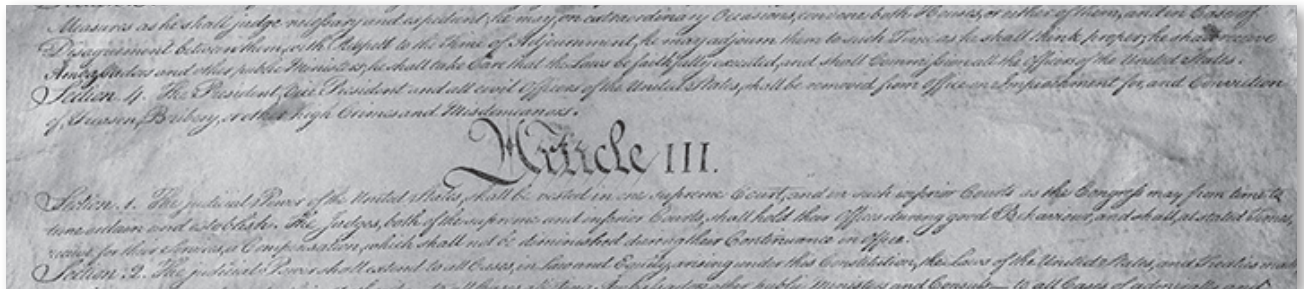 Measures as he shall judge necessary and expedient; he may, on extraordinary Occasions, convene both Houses, or either of them, and in Case of
Disagreement between them, with Respect to the Time of Adjournment, he may adjourn them to such Time as he shall think proper; he shall receive
Ambassadors and other public Ministers; he shall take Care that the Laws be faithfully executed, and shall Commission all the Officers of the United States.
Section. 4. The President, Vice President and all civil Officers of the United States, shall be removed from Office on Impeachment for, and Conviction
of, Treason, Bribery, or other high Crimes and Misdemeanors.
Article III.
Section. 1. The judicial Power of the United States, shall be vested in one supreme Court, and in such inferior Courts as the Congress may from time to
time ordain and establish. The Judges, both of the supreme and inferior Courts, shall hold their Offices during good Behaviour, and shall, at stated Times,
receive for their Services, a Compensation, which shall not be diminished during their Continuance in Office.
Section. 2. The judicial Power shall extend to all Cases, in Law and Equity, arising under this Constitution, the Laws of the United States, and Treaties made
to all Cases affecting Ambassadors, other public Ministers and Consuls;—to all Cases of admiralty and